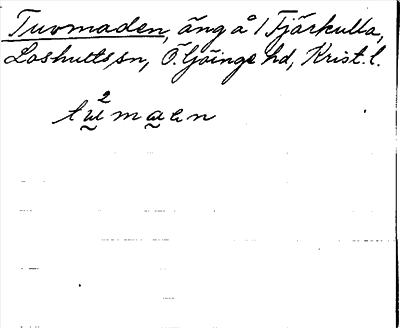 Tuvomaden, äng å 1 Fjärkulla,
Loshults sn, Ö. Göinge hd, Krist. l.